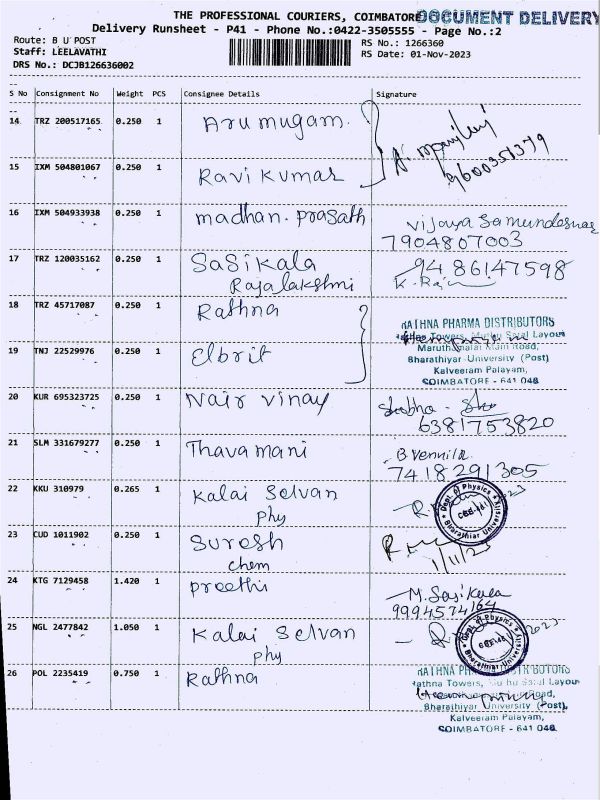 THE PROFESSIONAL COURIERS, COIMBATORE
DOCUMENT DELIVERY
Delivery Runsheet - P41 - Phone No.:0422-3505555 - Page No.:2
Route: B U POST
RS No.: 1266360
Staff: LEELAVATHI
RS Date: 01-Nov-2023
DRS No.: DCJB126636002
S No Consignment No Weight PCS Consignee Details Signature
14 TRZ 200517165 0.250 1 Arumugam.
9600351379
15 IXM 504801067 0.250 1 Ravi Kumar
16 IXM 504933938 0.250 1 madhan. prasath
7904807003
17 TRZ 120035162 0.250 1 Sasikala 9486147598
Rajalakshmi
18 TRZ 45717087 0.250 1 Rathna
RATHNA PHARMA DISTRIBUTORS
Towers, Layout
Road,
19 TNJ 22529976 0.250 1 Elbrit
Bharathiyar University (Post)
Kalveeram Palayam,
COIMBATORE - 641 046
20 KUR 695323725 0.250 1 Nair vinay
6381753820
21 SLM 331679277 0.250 1 Thavamani B Vennila
7418291305
22 KKU 310979 0.265 1 Kalai Selvan
phy
Dept. of Physics
Bharathiar University
23 CUD 1011902 0.250 1 Suresh
chem
1/11/23
24 KTG 7129458 1.420 1 preethi M. Sasikala
9994574164
25 NGL 2477842 1.050 1 Kalai Selvan
phy
Dept. of Physics
Bharathiar University
26 POL 2235419 0.750 1 Rathna
RATHNA
Rathna Towers, Layout
Road,
Bharathiyar University (Post),
Kalveeram Palayam,
COIMBATORE - 641 046